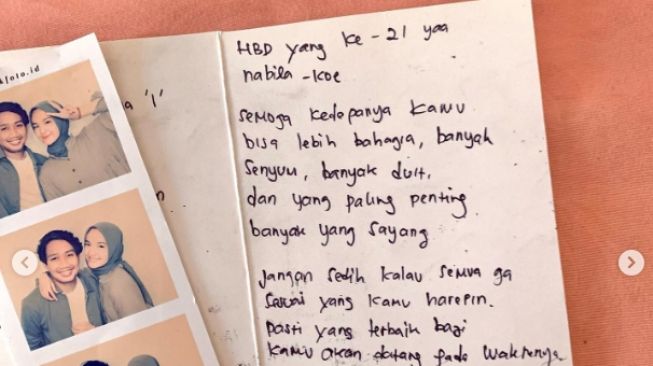 foto.id
a '1'
n
HBD yang ke - 21 yaa
nabila - koe
semoga kedepanya kamu
bisa lebih bahagia, banyak
senyum, banyak duit,
dan yang paling penting
banyak yang sayang
Jangan sedih kalau semua ga
sesuai yang kamu harepin.
pasti yang terbaik bagi
kamu akan datang pada waktunya